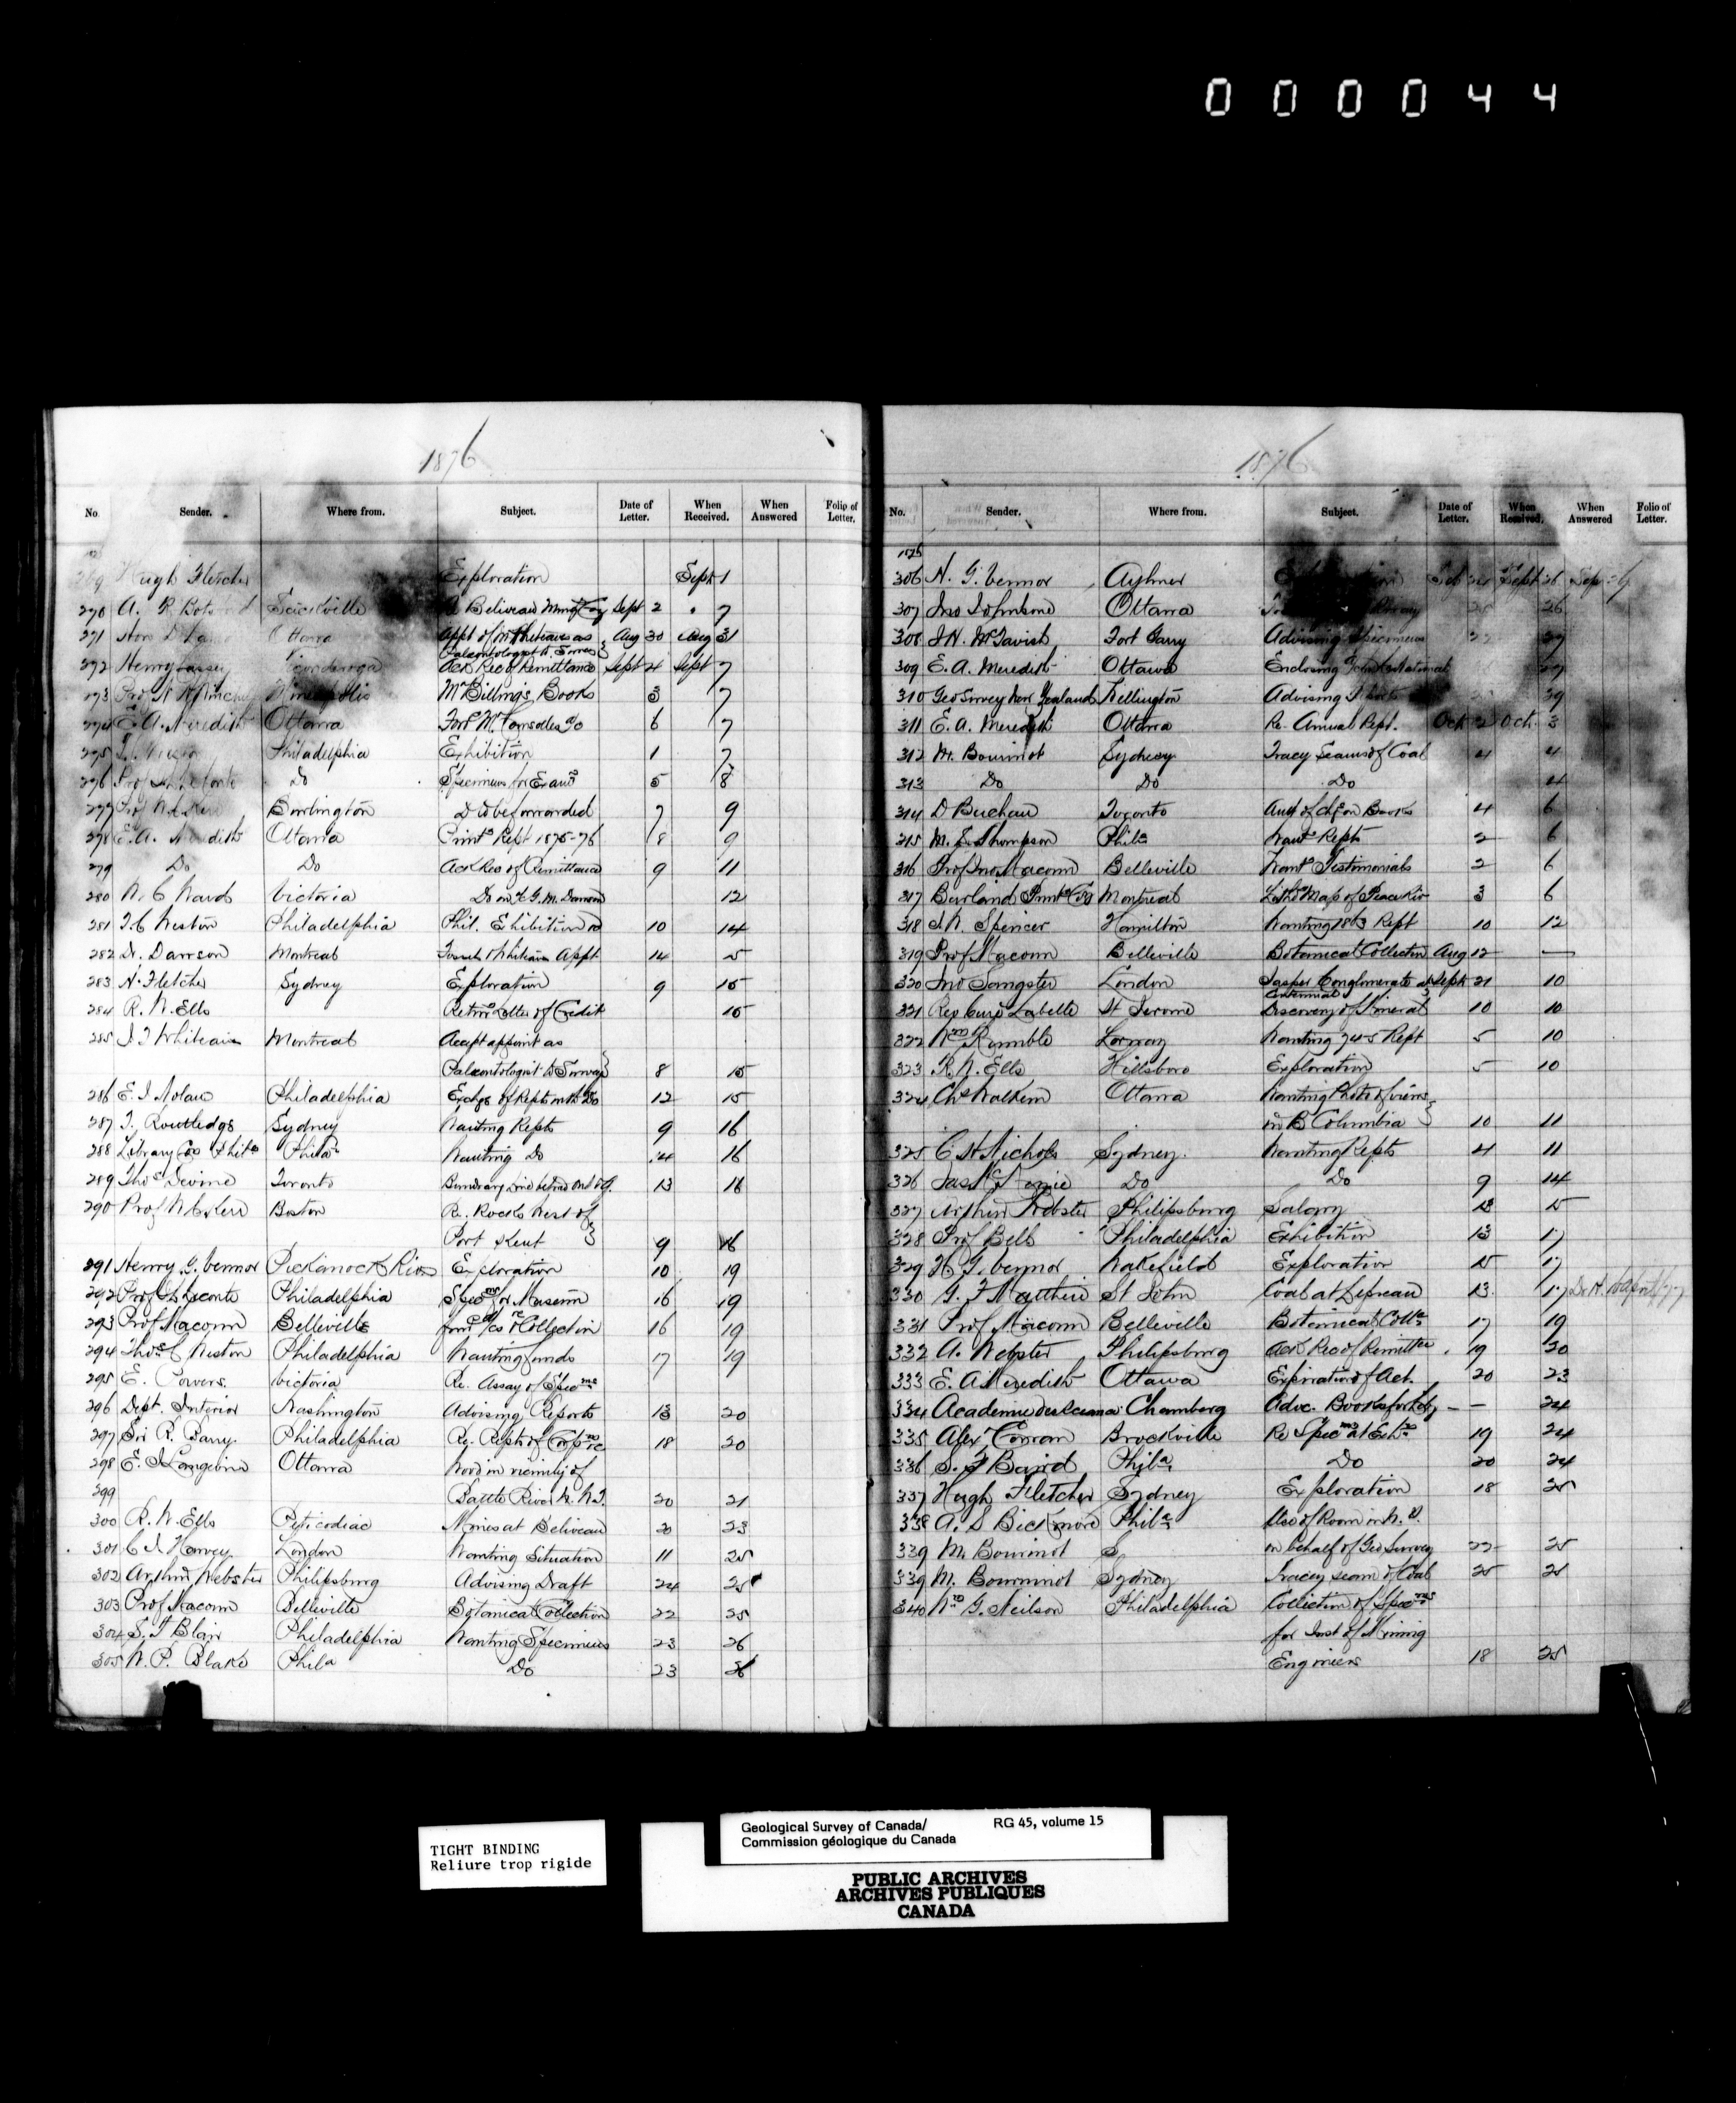 000044
1876
No. Sender. Where from. Subject. Date of Letter. When Received. When Answered Folio of Letter.
269 Hugh Fletcher Exploration Sept 1
270 A. R. Scicilville Re Beliveau Ming Coy Sept 2 " 7
271 Hon Ottawa Appt of Mr Whiteaves as Aug 30 Aug 31
Palaeontologist to Survey
272 Henry Ticonderoga Ack Rec of Remittance Sept 4 Sept 7
273 Prof N H Winchell Minneapolis Mr Billings Books 3 7
274 E. A. Meredith Ottawa Ford Mr 6 7
275 Philadelphia Exhibition 1 7
276 Prof Do Specimens for Exam 5 8
277 Prof Burlington Do to be forwarded 7 9
278 E. A. Meredith Ottawa Print Rept 1875-76 8 9
279 Do Do Ack Rec of Remittance 9 11
280 W. C Ward Victoria Do on G. M. Dawson 12
281 T. C Weston Philadelphia Phil. Exhibition 10 14
282 Dr. Dawson Montreal Whiteaves Appt 14 15
283 H. Fletcher Sydney Exploration 9 15
284 R. W. Ells Retng Letter of Credit 15
285 J F Whiteaves Montreal Accept appoint as
Palaeontologist to Survey 8 15
286 E. J Nolan Philadelphia Exchge of Repts with Do 12 15
287 T. Routledge Sydney Wanting Repts 9 16
288 Library Co Phila Phila Wanting Do 14 16
289 Thos Devine Toronto Boundary Line betwd Ont & Q. 13 16
290 Prof W C Kerr Boston Re. Rocks West of
Port Kent 9 16
291 Henry G. Vennor Pickanock River Exploration 10 19
292 Prof Leconte Philadelphia Specms for Museum 16 19
293 Prof Macoun Belleville a/cs re Collection 16 19
294 Thos C Weston Philadelphia Wanting funds 17 19
295 E. Powers. Victoria Re. Assay of Specms
296 Dept. Interior Washington Advising Reports 13 20
297 Sir R. Barry Philadelphia Re. Repts of 18 20
298 E. J Langevin Ottawa Wood in vicinity of
299 Battle River N. W. T. 20 21
300 R. W. Ells Peticodiac Mines at Beliveau 20 23
301 C J. Harvey London Wanting Situation 11 25
302 Arthur Webster Philipsburg Advising Draft 24 25
303 Prof Macoun Belleville Botanical Collection 22 25
304 S. F Blair Philadelphia Wanting Specimens 23 26
305 W. P. Blake Phila Do 23 26
1876
No. Sender. Where from. Subject. Date of Letter. When Received. When Answered Folio of Letter.
1876
306 H. G. Vennor Aylmer Sep 24 Sept 26 Sep 26
307 Jno Johnson Ottawa 25 26
308 J H. McTavish Fort Garry Advising Specimens 27
309 E. A. Meredith Ottawa Enclosing 27
310 Geo Survey New Zealand Wellington Advising 29
311 E. A. Meredith Ottawa Re. Annual Rept. Oct 2 Oct. 3
312 M. Bourinot Sydney Tracy Seams of Coal 4 4
313 Do Do Do 4
314 D Buchan Toronto on Books 4 6
315 M. S. Thompson Phila Want Repts 2 6
316 Prof Jno Macoun Belleville Want Testimonials 2 6
317 Burland Print Co Montreal Litho Map of Peace Riv 3 6
318 J. W. Spencer Hamilton Wanting 1863 Rept 10 12
319 Prof Macoun Belleville Botanical Collection Aug 12 —
320 Jno Sangster London Jasper Conglomerate at Sept 21 10
Centennial
321 Rev Curé Labelle St Jerome Discovery of Mineral 10 10
322 Wm Rumble Wanting 74-5 Rept 5 10
323 R. W. Ells Hillsboro Exploration 5 10
324 Chs Walkem Ottawa Wanting Photo of views
in B Columbia 10 11
325 C H Nichols Sydney. Wanting Repts 4 11
326 Jas Do Do 9 14
327 Arthur Webster Philipsburg Salary 13 15
328 Prof Bell Philadelphia Exhibition 13 17
329 H G. Vennor Wakefield Exploration 15 17
330 G. F Matthew St John Coal at Lepreau 13 17
331 Prof Macoun Belleville Botanical Colln 17 19
332 A. Webster Philipsburg Ack Rec of Remittce 19 20
333 E. A Meredith Ottawa Expiration of Act. 20 23
334 Academie des Sciences Chambery Advc. Books forthg — — 24
335 Alexr Cowan Brockville Re Specms at Exhn 19 24
336 S. F Baird Phila Do 20 24
337 Hugh Fletcher Sydney Exploration 18 25
338 A. S Bickmore Phila Use of Room in N. Y.
339 M. Bourinot S on behalf of Geo Survey 22 25
339 M. Bourinot Sydney Tracey seam of Coal 25 25
340 Wm G. Neilson Philadelphia Collection of Specms
for Inst of Mining
Engineers 18 25
TIGHT BINDING
Reliure trop rigide
Geological Survey of Canada/ RG 45, volume 15
Commission géologique du Canada
PUBLIC ARCHIVES
ARCHIVES PUBLIQUES
CANADA